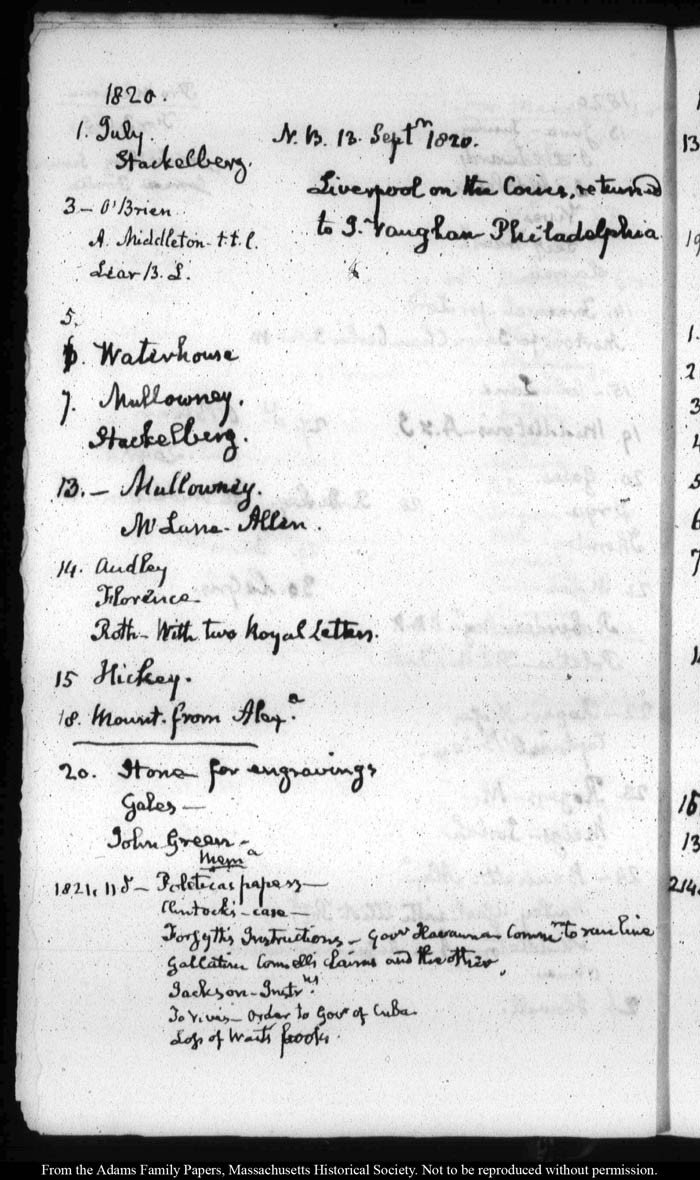 1820.
1. July.
Stackelberg.
N.B. 13. Septr 1820.
Liverpool on the Cours, returned
to J. Vaughan Philadelphia
3 – O'Brien
A. Middleton. t.t.C.
Lear B. L.
5.
6. Waterhouse
7. Mullowney.
Stackelberg.
13. – Mullowney.
McLane. Allen.
14. Audley
Florence
Roth – With two Royal Letters.
15 Hickey.
18. Mount. from Alexa.
20. Stone for engravings
Gales –
John Green –
Mema
1821. – Political papers –
Clintock's – case –
Forsyth's Instructions – Govr Havanna Commn to run line
Gallatin Connell's claims and the other,
Jackson – Instrns.
To Vives – Order to Govr of Cuba
Loss of Watts books.
13
19
1.
2
3
4
5
6
7
15
13
214.
From the Adams Family Papers, Massachusetts Historical Society. Not to be reproduced without permission.